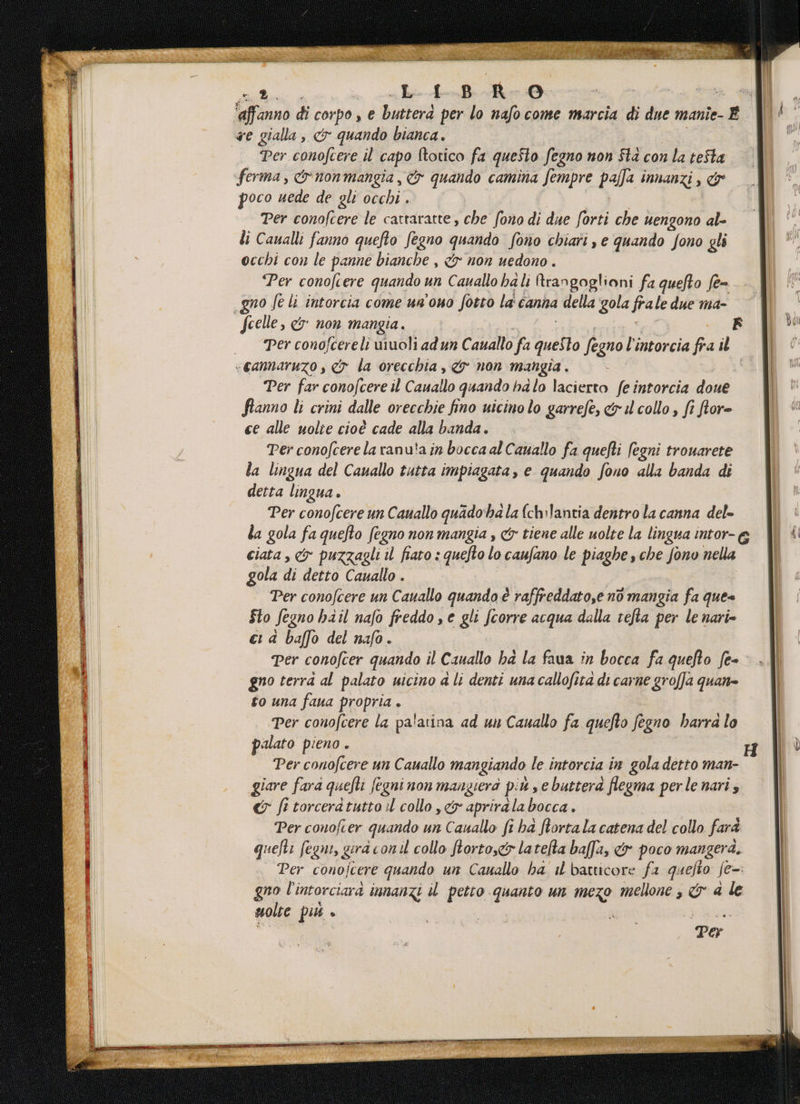 2 LIBRO
affanno di corpo, e butterà per lo naſo come marcia di due manie- E
re gialla, & quando bianca.
Per conoſcere il capo ſtotico fa queſto ſegno non ſtà con la teſta
ferma, & non mangia, & quando camina ſempre paſſa innanzi, &
poco uede de gli occhi.
Per conoſcere le cattaratte, che ſono di due ſorti che uengono al-
li Caualli fanno queſto ſegno quando ſono chiari, e quando ſono gli
occhi con le panne bianche, & non uedono.
Per conoſcere quando un Cauallo hà li ſtrangoglioni fa queſto ſe-
gno ſe li intorcia come un'ouo ſotto la canna della gola fra le due ma-
ſcelle, & non mangia. F
Per conoſcere li uiuoli ad un Cauallo fa queſto ſegno l'intorcia fra il
cannaruzo, & la orecchia, & non mangia.
Per far conoſcere il Cauallo quando hà lo lacierto ſe intorcia doue
ſtanno li crini dalle orecchie fino uicino lo garreſe, & il collo, ſi ſtor-
ce alle uolte cioè cade alla banda.
Per conoſcere la ranula in bocca al Cauallo fa queſti ſegni trouarete
la lingua del Cauallo tutta impiagata, e quando ſono alla banda di
detta lingua.
Per conoſcere un Cauallo quãdo hà la ſchilantia dentro la canna del-
la gola fa queſto ſegno non mangia, & tiene alle uolte la lingua intor- G
ciata, & puzzagli il fiato: queſto lo cauſano le piaghe, che ſono nella
gola di detto Cauallo.
Per conoſcere un Cauallo quando è raffreddato, e nõ mangia fa que-
ſto ſegno hà il naſo freddo, e gli ſcorre acqua dalla teſta per le nari-
ci à baſſo del naſo.
Per conoſcer quando il Cauallo hà la faua in bocca fa queſto ſe-
gno terrà al palato uicino à li denti una calloſità di carne groſſa quan-
to una faua propria.
Per conoſcere la palatina ad un Cauallo fa queſto ſegno harrà lo
palato pieno. H
Per conoſcere un Cauallo mangiando le intorcia in gola detto man-
giare farà queſti ſegni non mangierà più, e butterà flegma per le nari,
& ſi torcerà tutto il collo, & aprirà la bocca.
Per conoſcer quando un Cauallo ſi hà ſtorta la catena del collo farà
queſti ſegni, girà con il collo ſtorto, & la teſta baſſa, & poco mangerà.
Per conoſcere quando un Cauallo ha il batticore fa queſto ſe-
gno l'intorciarà innanzi il petto quanto un mezo mellone, & à le
uolte più.
Per